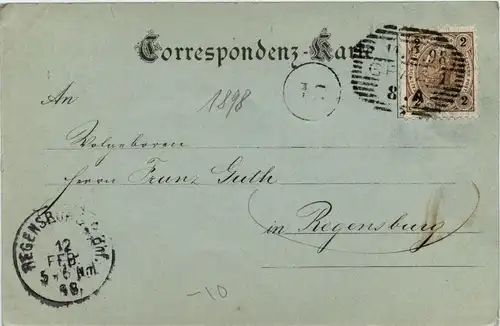 Correspondenz-Karte
2
2
98
8 A
1898
An
Wolgeboren
Herrn Franz Guth
in Regensburg
REGENSBURG Bhf.
12
FEB.
5-6 Nm.
98.
-10